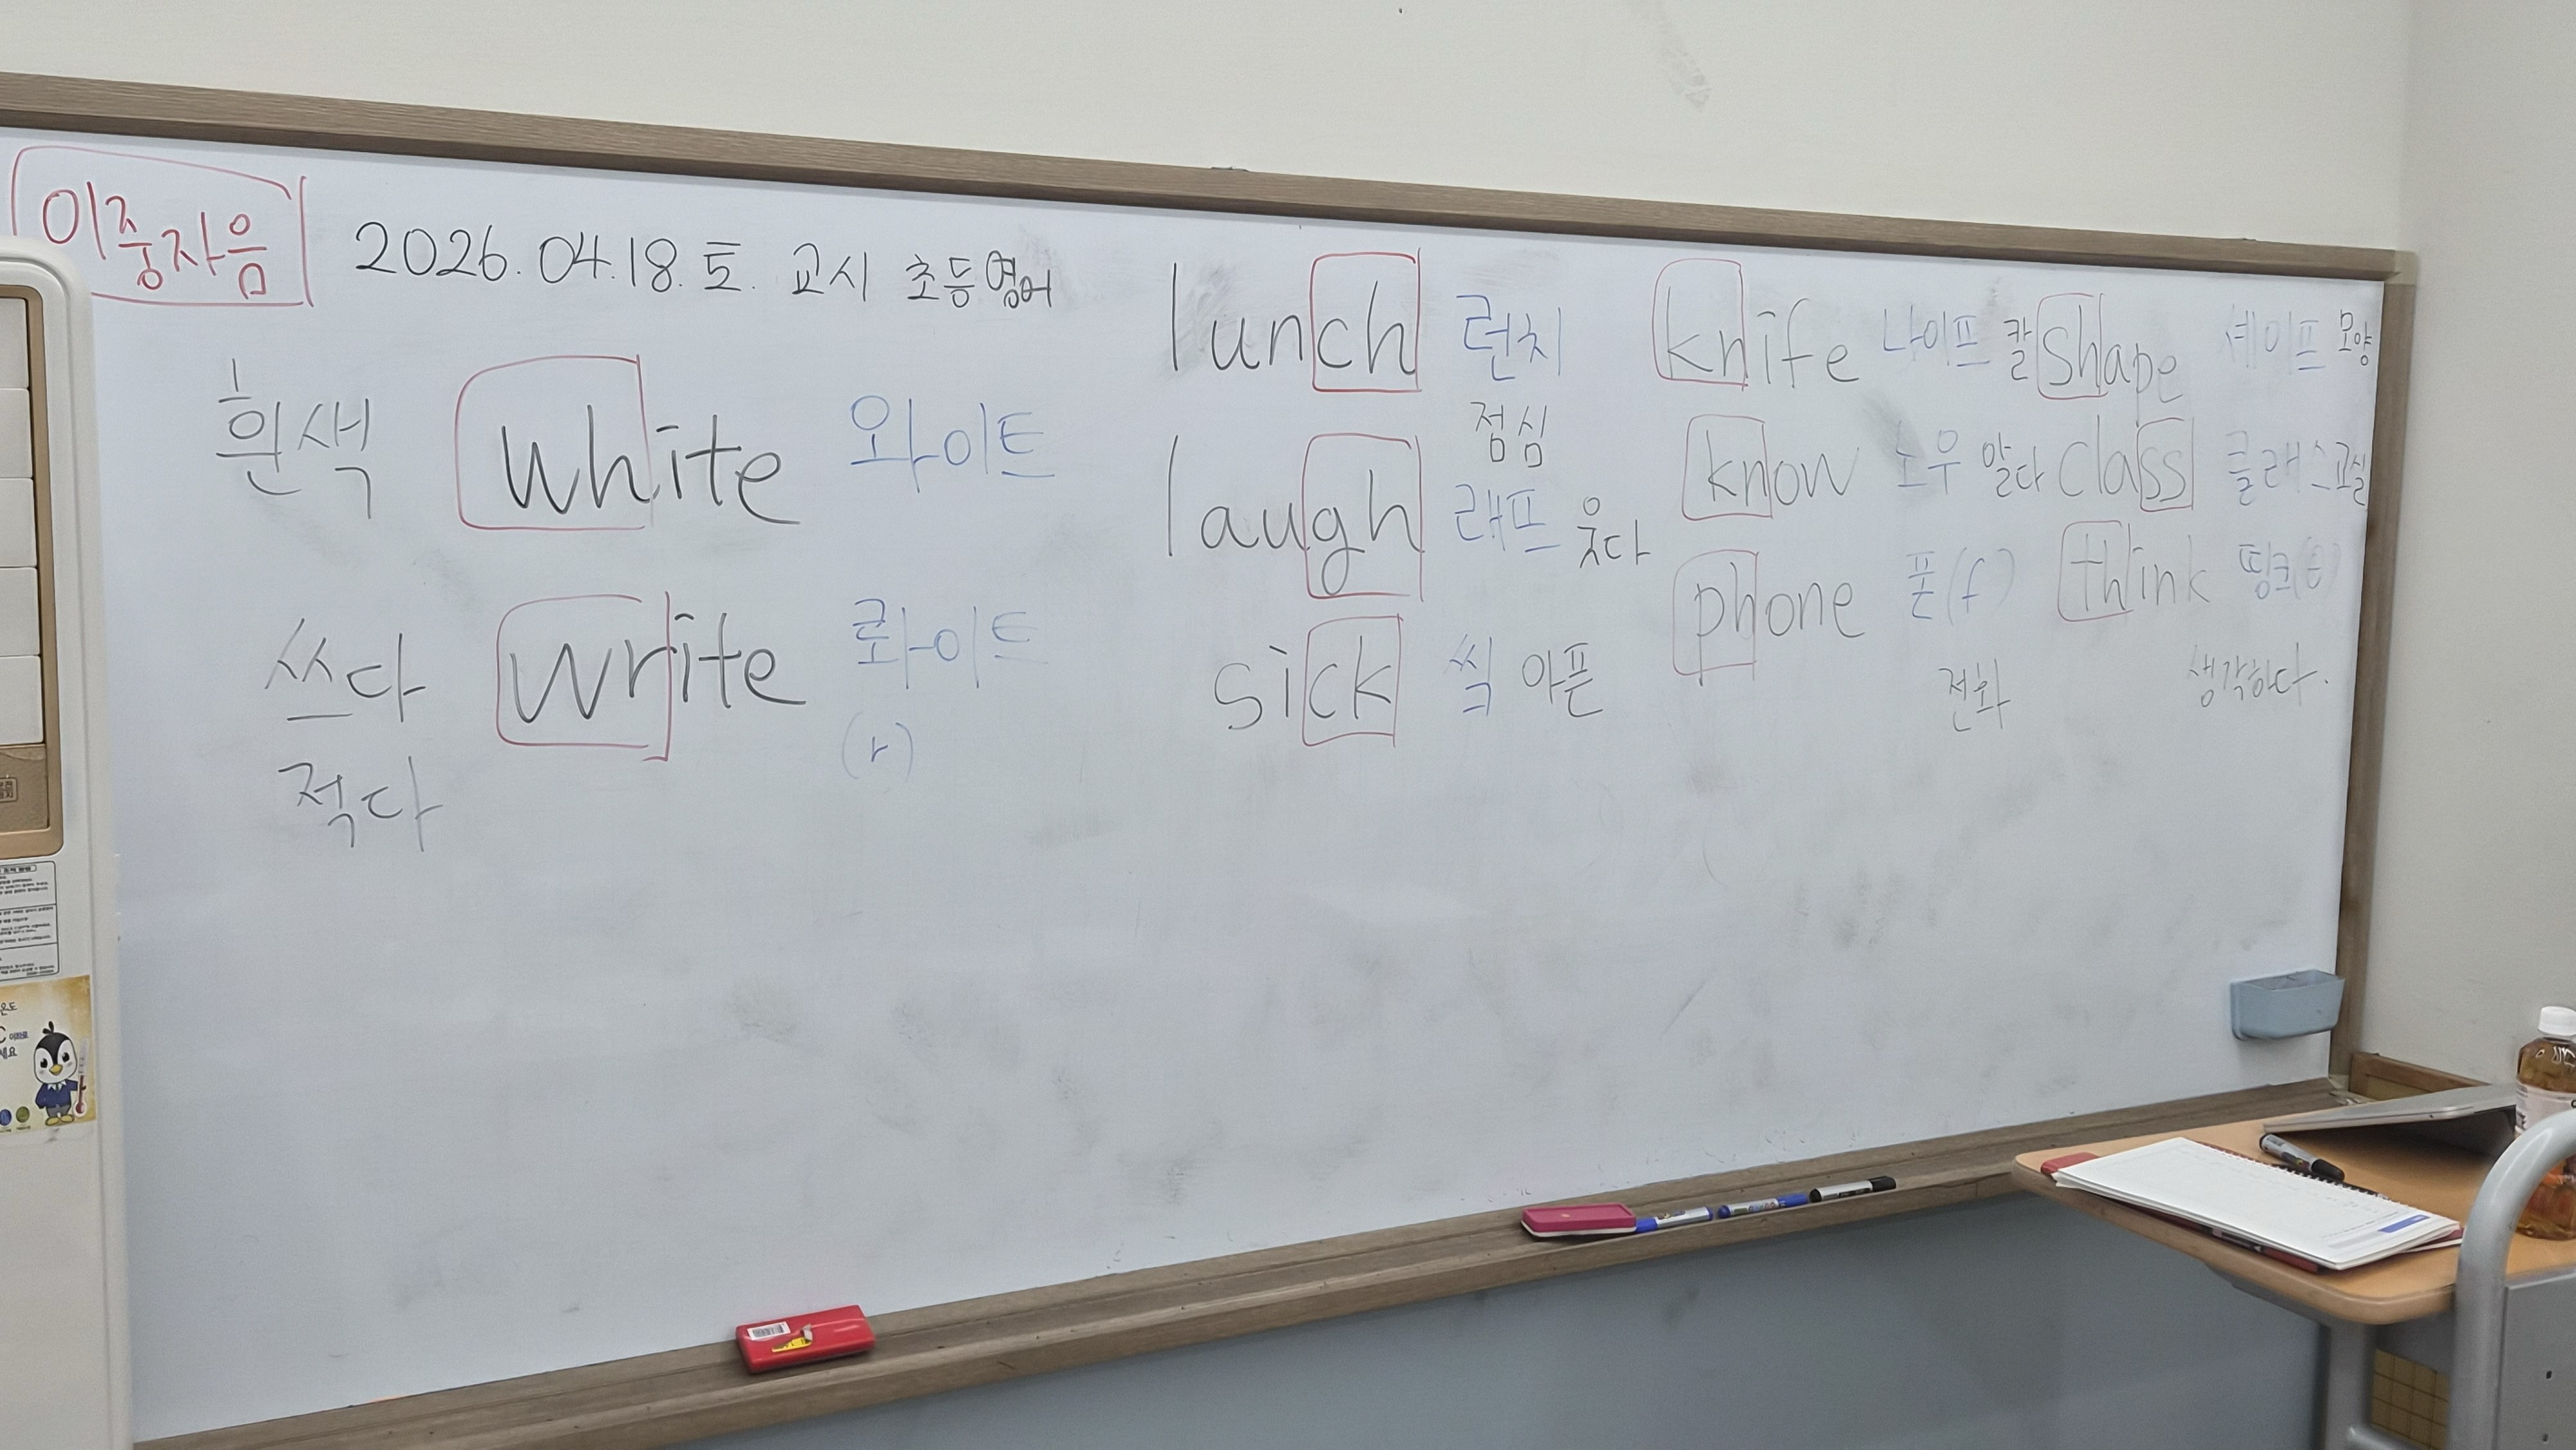 이중자음
2026.04.18.토. 교시 초등영어
흰색 white 와이트
쓰다 write 롸이트
적다 (r)
lunch 런치
점심
laugh 래프 웃다
sick 씩 아픈
knife 나이프 칼
know 노우 알다
phone 폰(f)
전화
shape 셰이프 모양
class 클래스 교실
think 띵크(θ)
생각하다.